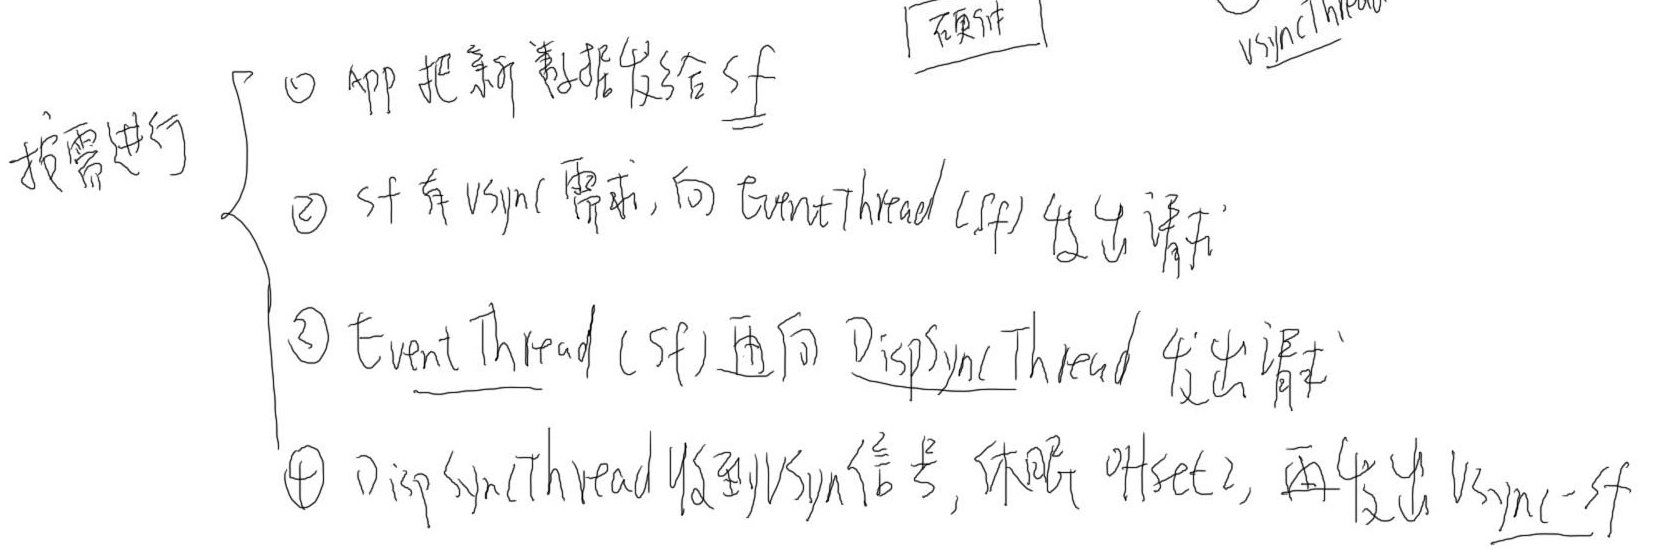 硬件
VSyncThread
按需进行
① APP 把新数据发给 sf
② sf 有 VSync 需求, 向 EventThread (sf) 发出请求
③ EventThread (sf) 再向 DispSyncThread 发出请求
④ DispSyncThread 收到VSyn信号, 休眠 offset2, 再发出 VSync-sf